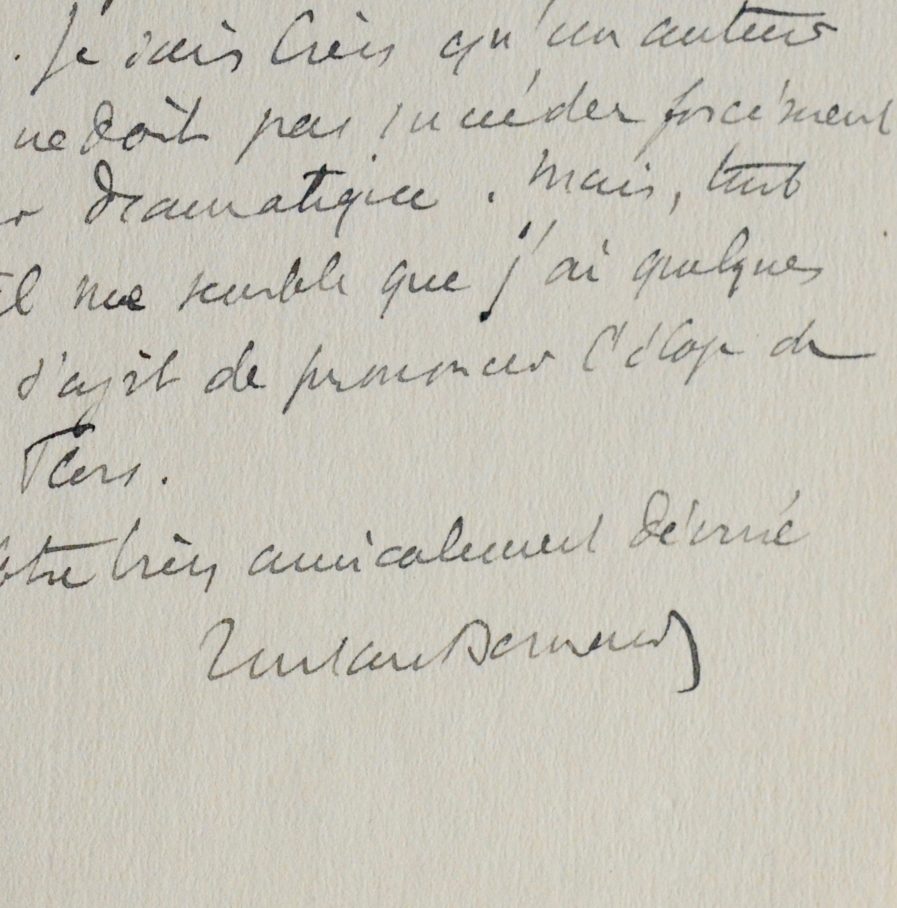 . Je sais très qu'un auteur
ne doit pas succéder forcément
r dramatique. Mais, tout
il me semble que j'ai quelques
s'agit de prononcer l'éloge de
Flers.
otre très amicalement dévoué
Tristan Bernard